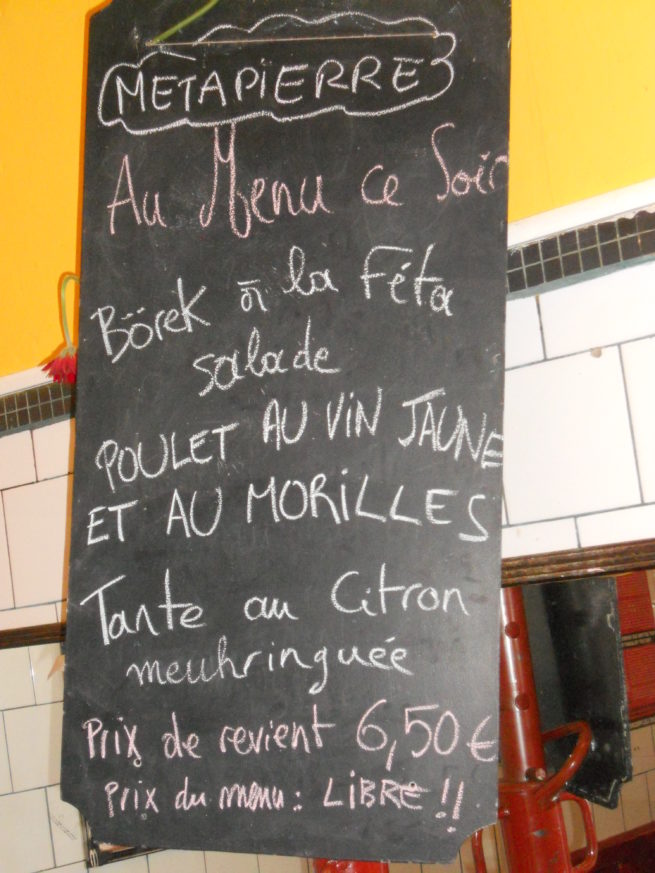 METAPIERRE
Au Menu ce Soir
Börek à la Féta
salade
POULET AU ViN JAUNE
ET AU MORiLLES
Tante au Citron
meuhringuée
Prix de revient 6,50 €
Prix du menu : LiBRE !!